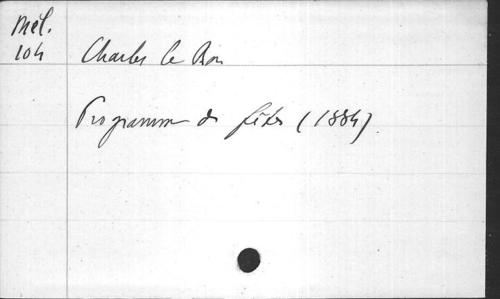 Mél.
104
Charles le Bon
Programme des fêtes (1884)